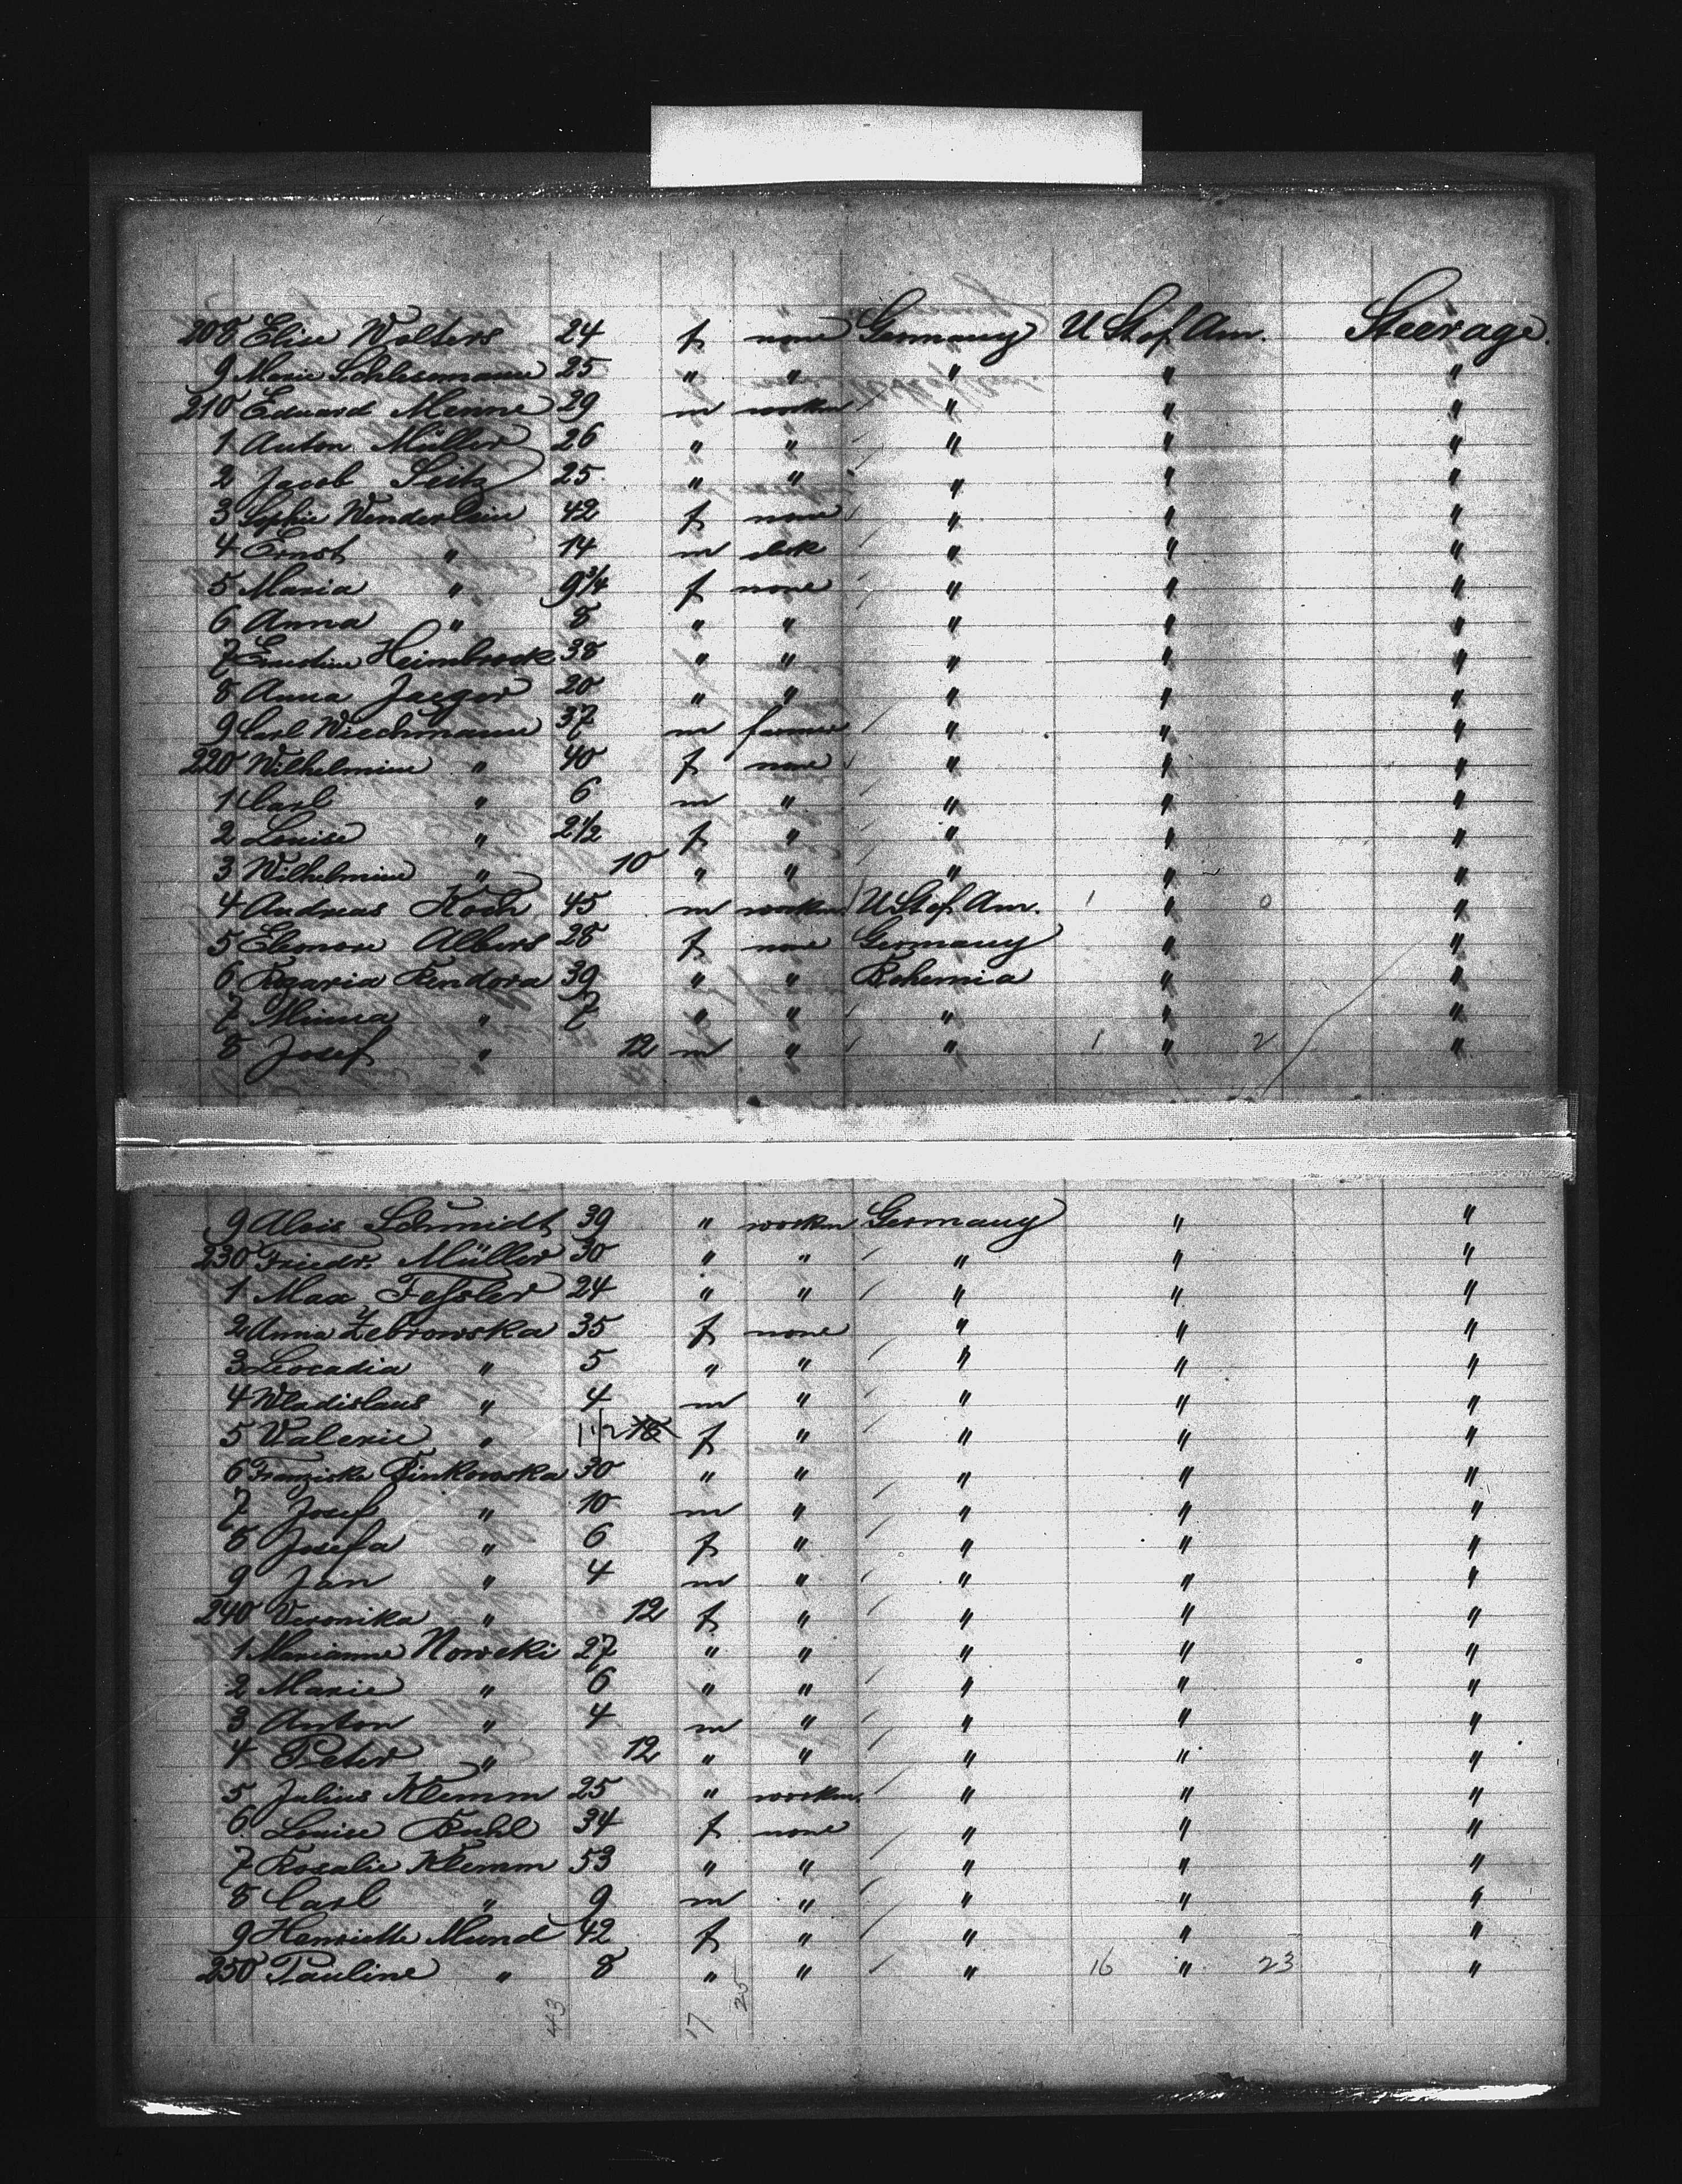 208 Elise Wolters 24 f none Germany U St of Am. Steerage.
9 Marie Schliemann 25 " " " " "
210 Eduard Meine 29 m workm " " "
1 Anton Müller 26 " " " " "
2 Jacob Seitz 25 " " " " "
3 Sophie Wenderlein 42 f none " " "
4 Ernst " 14 m clerk " " "
5 Maria " 9 3/4 f none " " "
6 Anna " 8 " " " " "
7 Ernestine Heimbrock 38 " " " " "
8 Anna Jaeger 20 " " " " "
9 Carl Wiechmann 37 m farmer " " "
220 Wilhelmine " 40 f none " " "
1 Carl " 6 m " " " "
2 Louise " 2 1/2 f " " " "
3 Wilhelmine " 10 " " " " "
4 Andreas Koch 45 m workm U St of Am. 1 " 0 "
5 Eleonore Albers 28 f none Germany " "
6 Kendora 39 " " Bohemia " "
7 Minna " 7 " " " " "
8 Josef " 12 m " " 1 " 2 "
9 Alois Schmidt 39 " workm Germany " "
230 Friedr. Müller 30 " " " " "
1 Max Feßler 24 " " " " "
2 Anna Zebrowska 35 f none " " "
3 Leocadia " 5 " " " " "
4 Wladislaus " 4 m " " " "
5 Valerie " 1 1/2 f " " " "
6 Franziska Binkowska 30 " " " " "
7 Josef " 10 m " " " "
8 Josefa " 6 f " " " "
9 Jan " 4 m " " " "
240 Veronika " 12 f " " " "
1 Marianne Nowcki 27 " " " " "
2 Marie " 6 " " " " "
3 Anton " 4 m " " " "
4 Peter " 12 " " " " "
5 Julius Klemm 25 " workm. " " "
6 Louise Buhl 34 f none " " "
7 Rosalie Klemm 53 " " " " "
8 Carl " 9 m " " " "
9 Henriette Mund 42 f " " " "
250 Pauline " 8 " " " 16 " 23 "
43 17 25